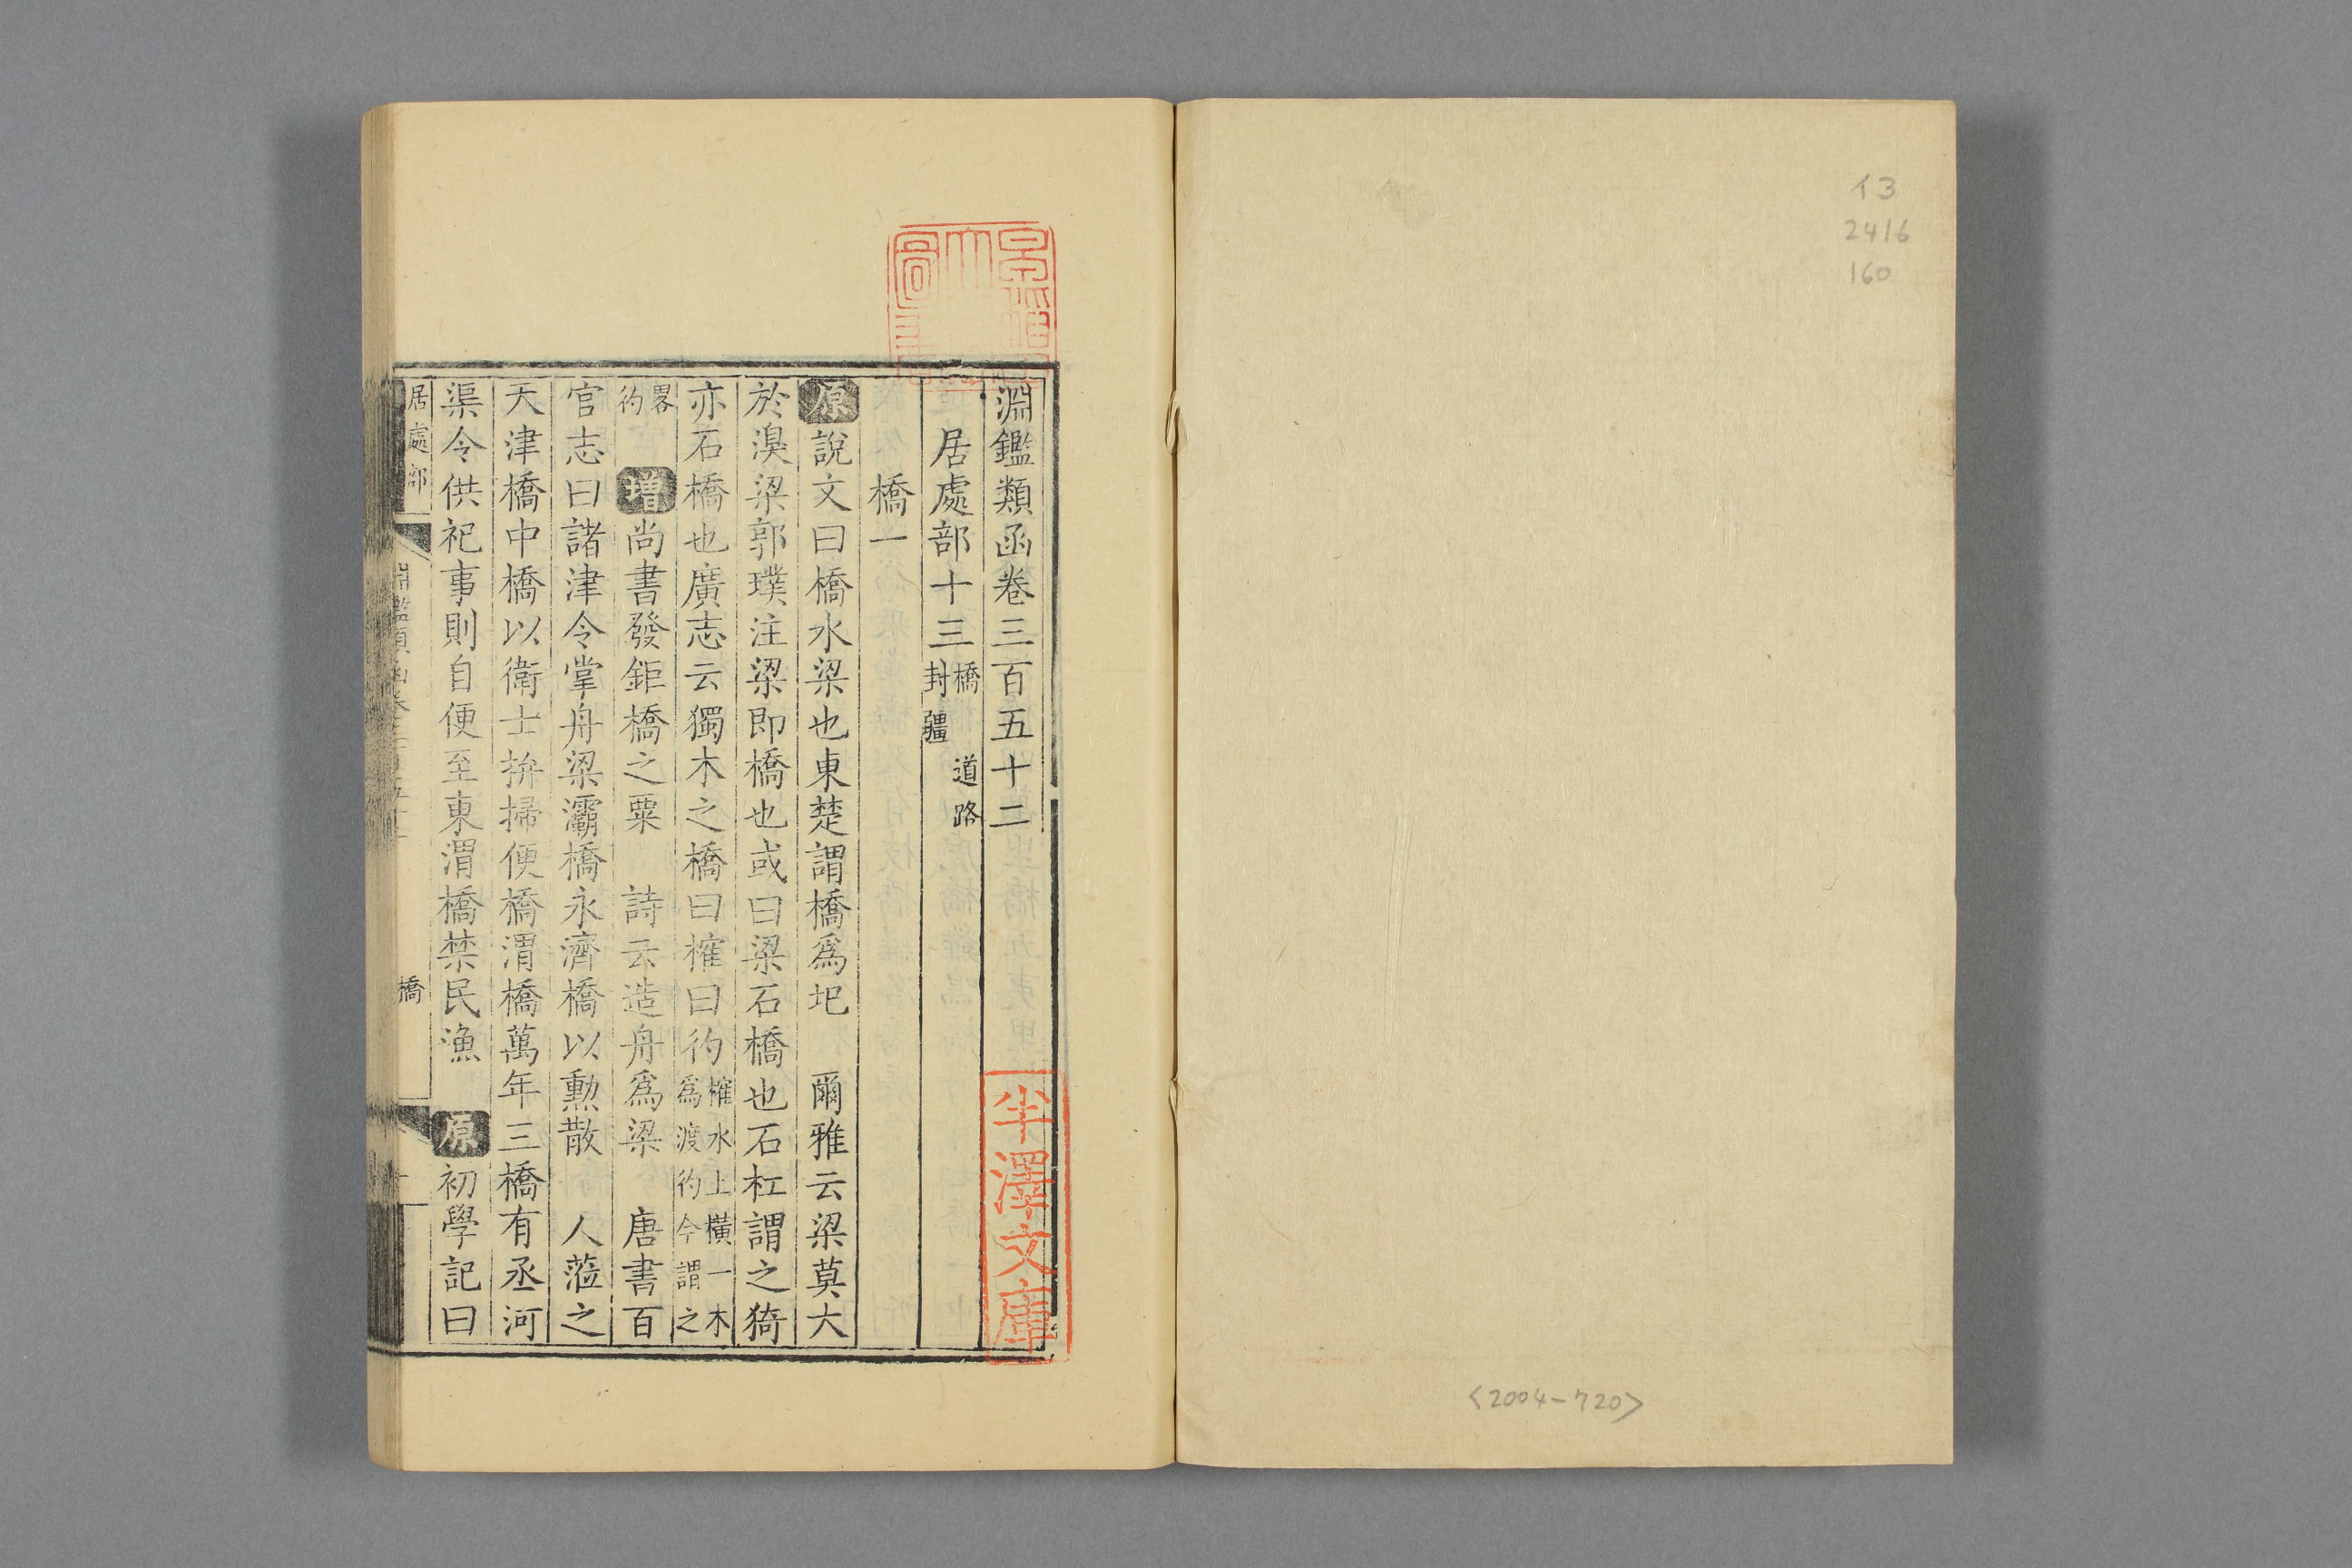 イ3
2416
160
<2004-720>
淵鑑類函卷三百五十二
居處部十三 橋 道路 封疆
橋一
原說文曰橋水梁也東楚謂橋爲圯 爾雅云梁莫大
於湨梁郭璞注梁即橋也或曰梁石橋也石杠謂之猗
亦石橋也廣志云獨木之橋曰榷曰彴榷水上橫一木爲渡彴今謂之
畧彴 增尚書發鉅橋之粟 詩云造舟爲梁 唐書百
官志曰諸津令掌舟梁灞橋永濟橋以勲散 人蒞之
天津橋中橋以衛士拚掃便橋渭橋萬年三橋有丞河
渠令供祀事則自便至東渭橋禁民漁 原初學記曰
居處部
橋
半澤文庫